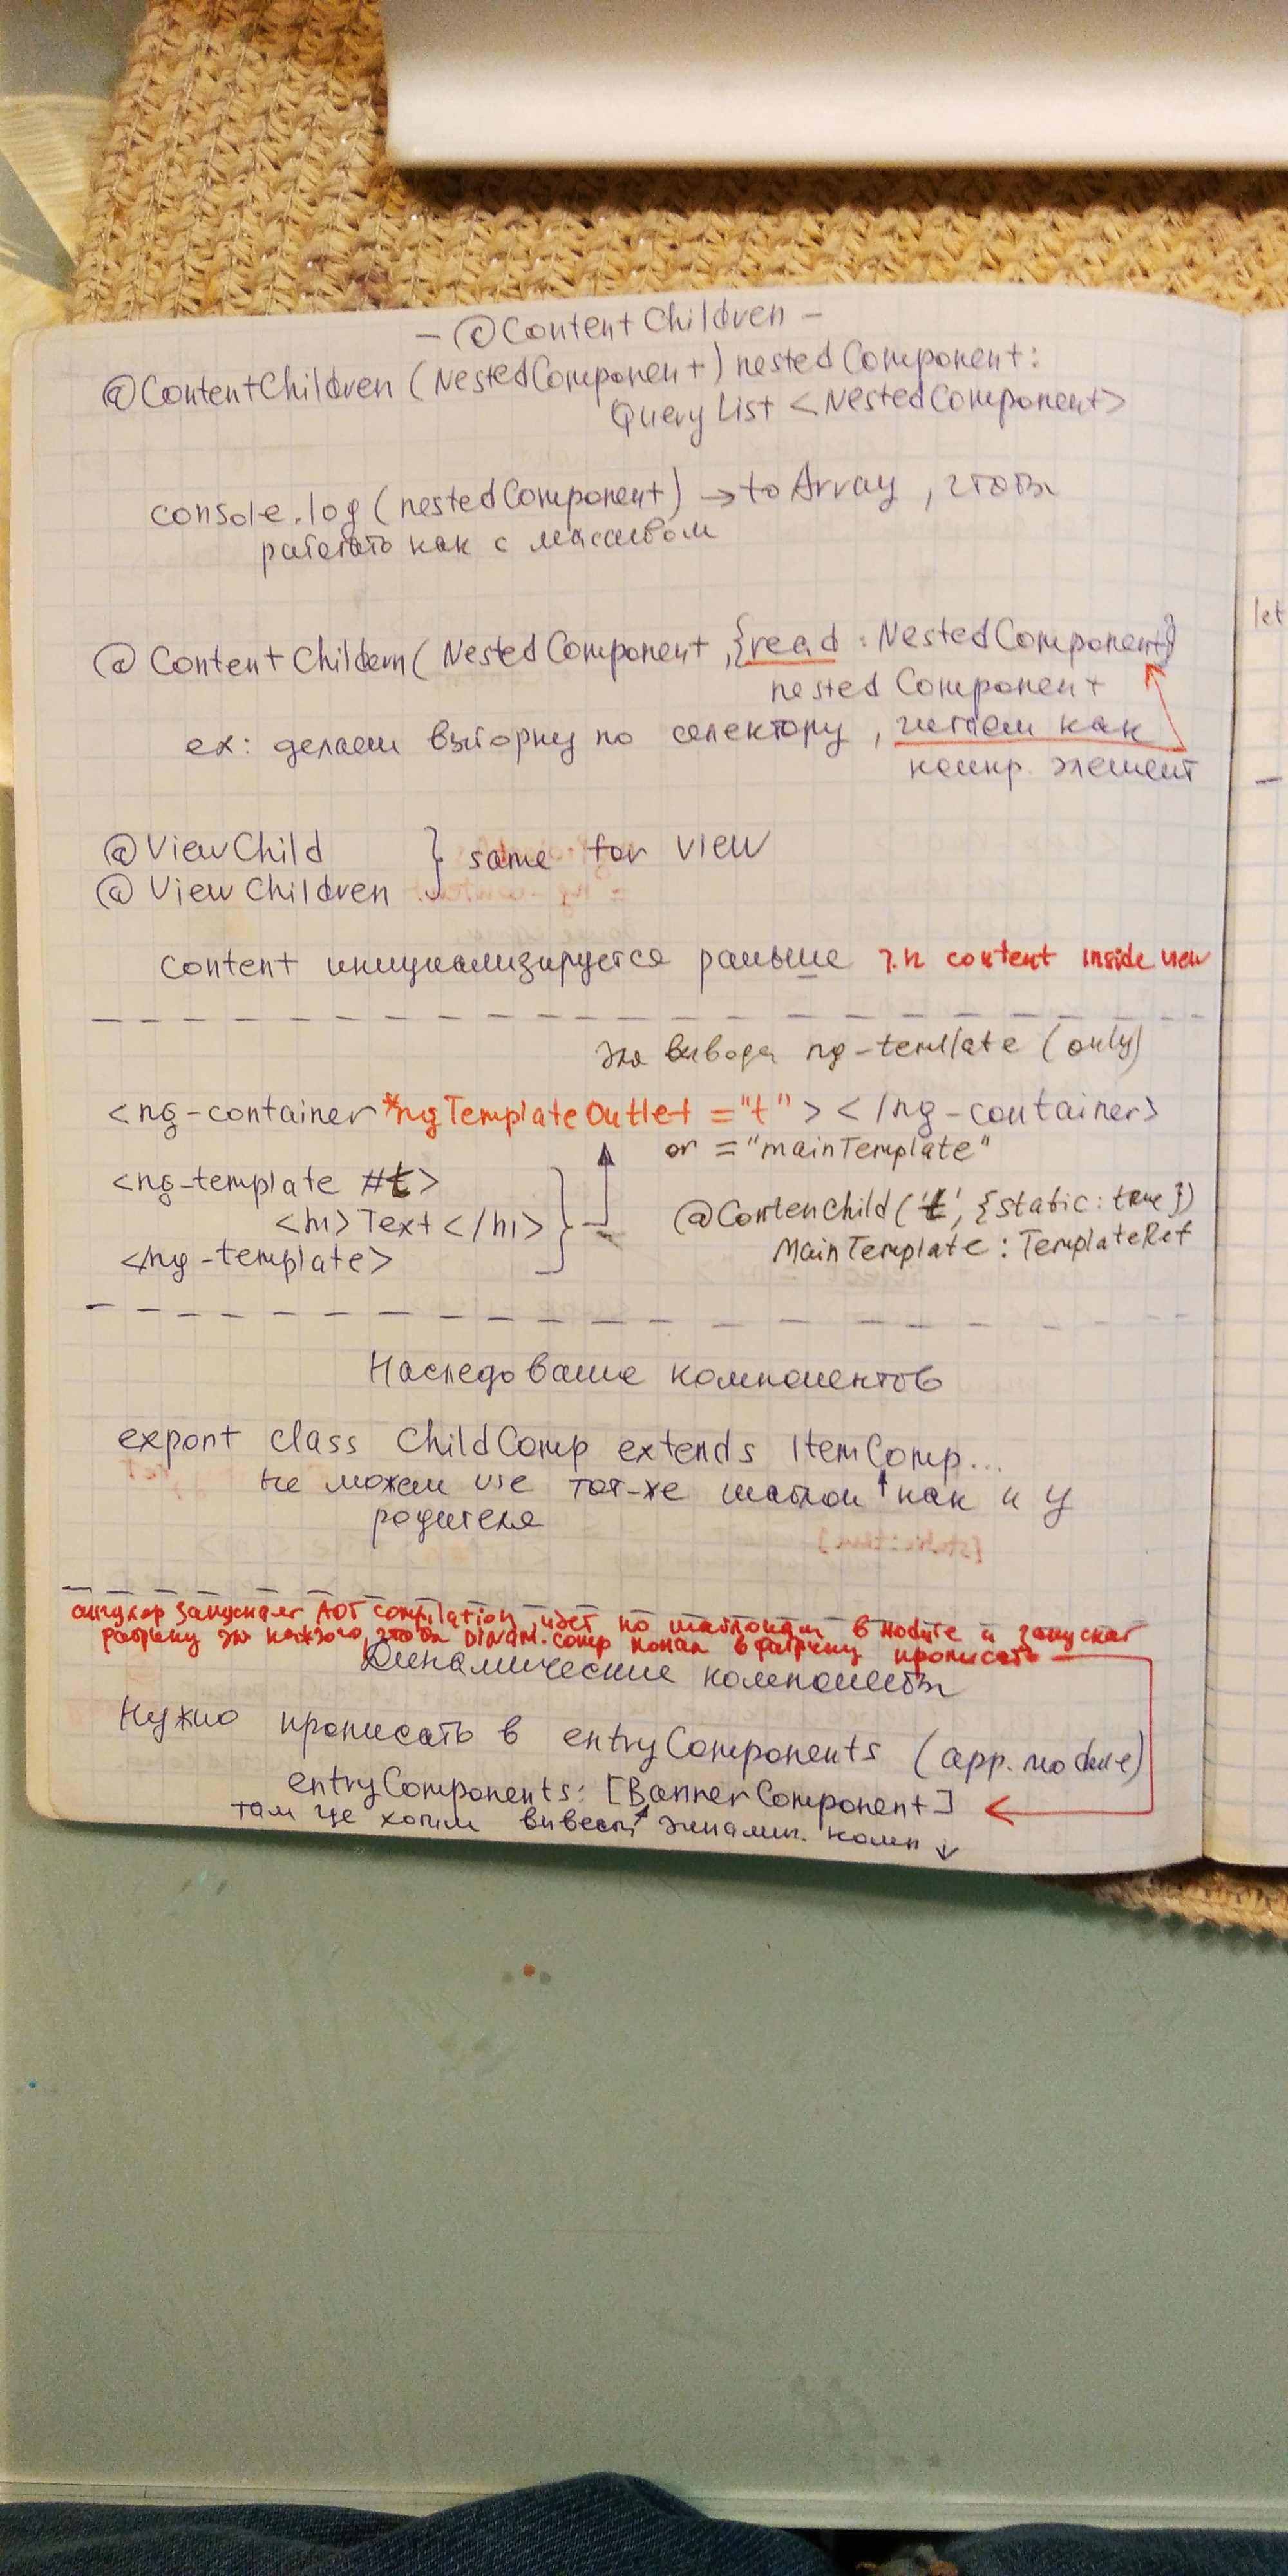 - @ContentChildren -
@ContentChildren (NestedComponent) nestedComponent:
QueryList <NestedComponent>
console.log (nestedComponent) → toArray , чтобы
работать как с массивом
@ContentChildern( NestedComponent ,{read : NestedComponent}
nestedComponent
ex: делаем выборку по селектору , читаем как
конкр. элемент
@ViewChild
@ViewChildren
} same for view
content инициализируется раньше т.к content inside view
для вывода ng-template (only)
<ng-container *ngTemplateOutlet ="t" > < /ng-container>
or ="mainTemplate"
<ng-template #t>
<h1> Text </h1>
</ng-template>
@ContenChild('t', {static: true})
MainTemplate : TemplateRef
Наследование компонентов
export class ChildComp extends ItemComp...
не можем use тот-же шаблон как и у
родителя
ангуляр запускает AOT compilation, идет по шаблонам в module и запускает
фабрику для каждого, чтобы DINAM. comp попал в фабрику прописать
Динамические компоненты
Нужно прописать в entryComponents (app.module)
entryComponents: [BannerComponent]
там где хотим вывести динамич. комп ↓
let